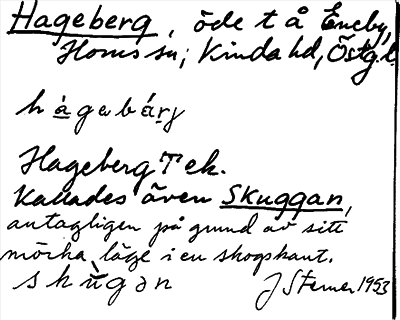 Hageberg, öde t å Eneby,
Horns sn; Kinda hd, Östg.l.
hȧgebärj
Hageberg T ek.
Kallades även Skuggan,
antagligen på grund av sitt
mörka läge i en skogskant.
skùgan
J Sterner 1953